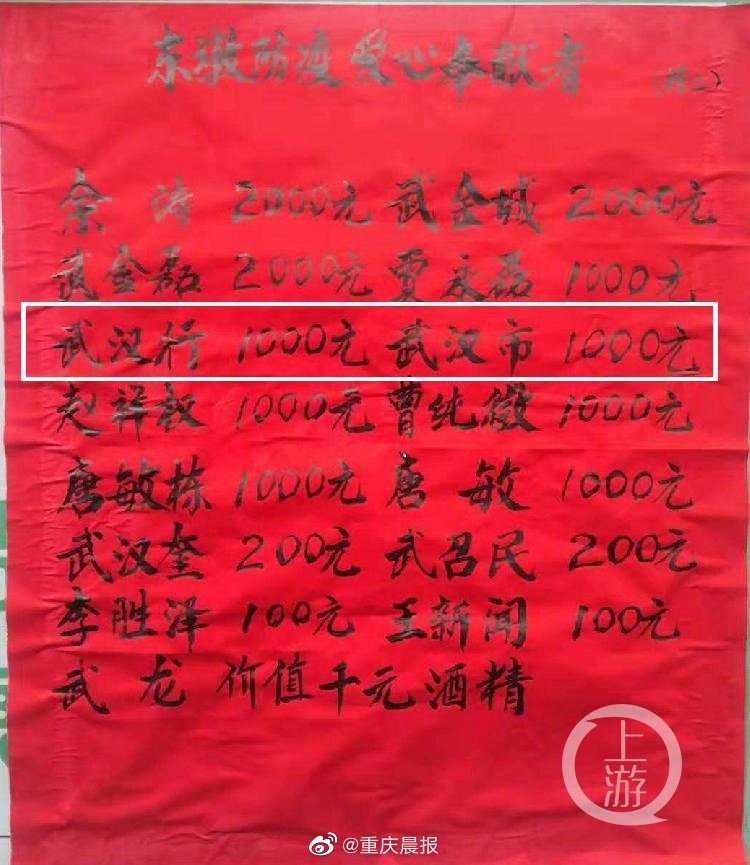 东墩防疫爱心奉献者
余涛 2000元 武金城 2000元
武金磊 2000元 贾永磊 1000元
武汉行 1000元 武汉市 1000元
赵祥权 1000元 曹纯俊 1000元
唐敏栋 1000元 唐敏 1000元
武汉奎 200元 武召民 200元
李胜泽 100元 王新闻 100元
武龙 价值千元酒精
上游
@重庆晨报